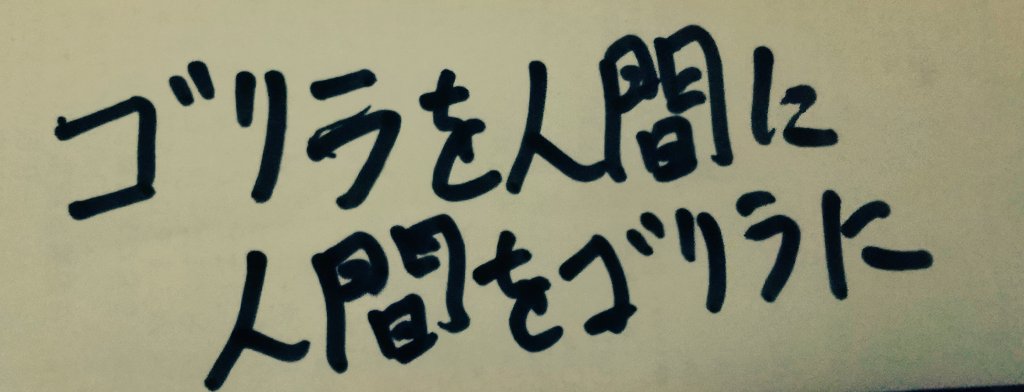 ゴリラを人間に
人間をゴリラに